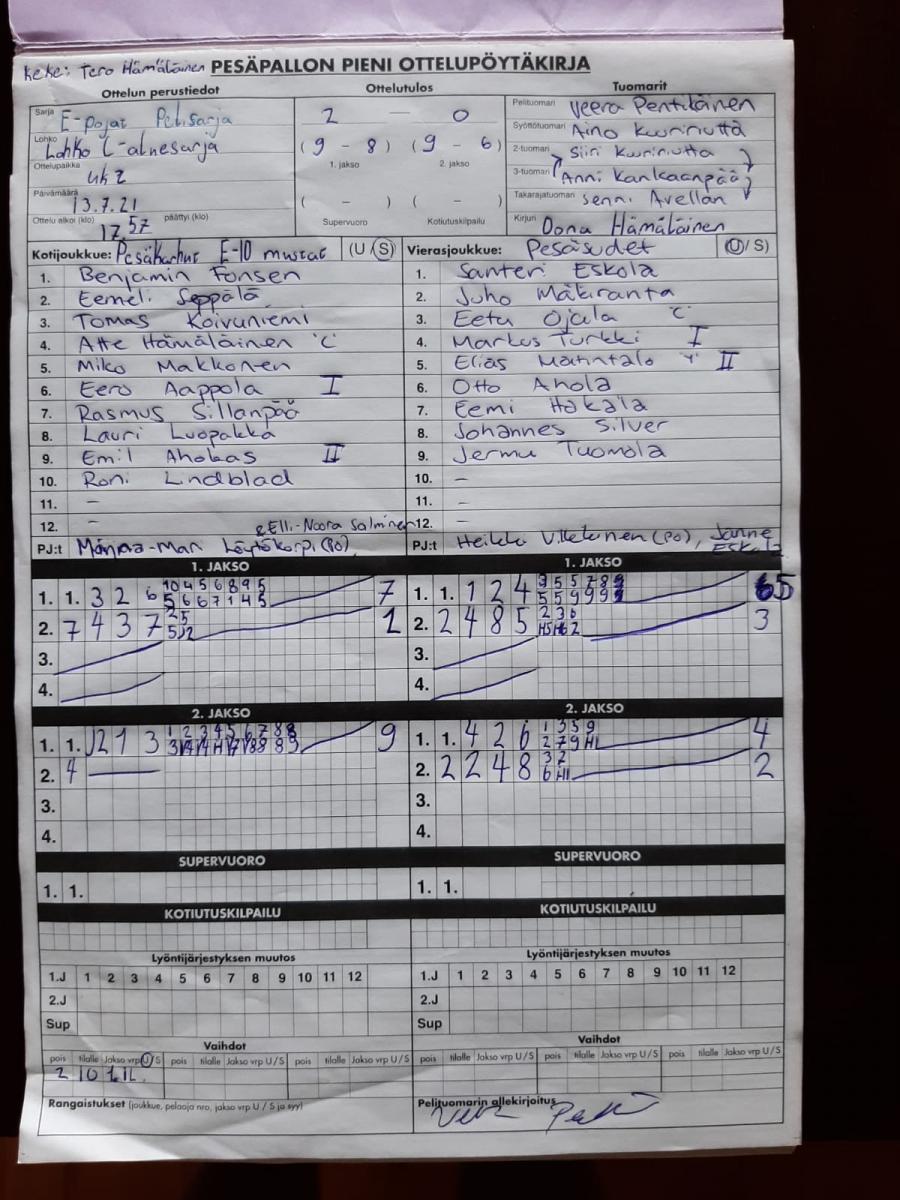 Keke: Tero Hämäläinen PESÄPALLON PIENI OTTELUPÖYTÄKIRJA
Ottelun perustiedot Ottelutulos Tuomarit
Sarja E-pojat Pelisarja 2 - 0 Pelituomari Veera Pentikäinen
Lohko Lohko C-alnesarja (9 - 8) (9 - 6) Syöttötuomari Aino Kuuriniutta
Ottelupaikka Uk2 1. jakso 2. jakso 2-tuomari Siiri Kuuriniutta
3-tuomari Anni Kankaanpää
Päivämäärä 13.7.21 ( - ) ( - ) Takarajatuomari Senni Avellan
Ottelu alkoi (klo) 17.57 päättyi (klo) Supervuoro Kotiutuskilpailu Kirjuri Oona Hämäläinen
Kotijoukkue: Pesäkarhut E-10 mustat (U/S) Vierasjoukkue: Pesäsudet (U/S)
1. Benjamin Fonsen 1. Santeri Eskola
2. Eemeli Seppälä 2. Juho Mäkiranta
3. Tomas Koivuniemi 3. Eetu Ojala "C"
4. Atte Hämäläinen "C" 4. Markus Turkki I
5. Miko Makkonen 5. Elias Matintalo II
6. Eero Aappola I 6. Otto Ahola
7. Rasmus Sillanpää 7. Eemi Hakala
8. Lauri Luopakka 8. Johannes Silver
9. Emil Ahokas II 9. Jermu Tuomola
10. Roni Lindblad 10. -
11. - 11. -
12. - & Elli-Noora Salminen 12. -
PJ:t Marjaa-Mari Löytökorpi (PO), PJ:t Heikki Vilkkonen (PO), Janne Eskola
1. JAKSO 1. JAKSO
1. 1. 3 2 6 10 4 5 6 8 9 5 7 1. 1. 1 2 4 5
5 6 6 7 1 4 5
2. 7 4 3 7 2 5 1 2. 2 4 8 5 2 3 6 3
3. 3.
4. 4.
2. JAKSO 2. JAKSO
1. 1. 2 1 3 1 2 3 4 5 6 7 8 8 9 1. 1. 4 2 6 1 3 5 9 4
2 7 9 H1
2. 4 2. 2 2 4 8 3 7 2
6 H1
3. 3.
4. 4.
SUPERVUORO SUPERVUORO
1. 1. 1. 1.
KOTIUTUSKILPAILU KOTIUTUSKILPAILU
Lyöntijärjestyksen muutos Lyöntijärjestyksen muutos
1.J 1 2 3 4 5 6 7 8 9 10 11 12 1.J 1 2 3 4 5 6 7 8 9 10 11 12
2.J 2.J
Sup Sup
Vaihdot Vaihdot
pois tilalle Jakso vrp U/S pois tilalle Jakso vrp U/S pois tilalle Jakso vrp U/S pois tilalle Jakso vrp U/S pois tilalle Jakso vrp U/S pois tilalle Jakso vrp U/S
2 10 1.
Rangaistukset (joukkue, pelaaja nro, jakso vrp U / S ja syy) Pelituomarin allekirjoitus